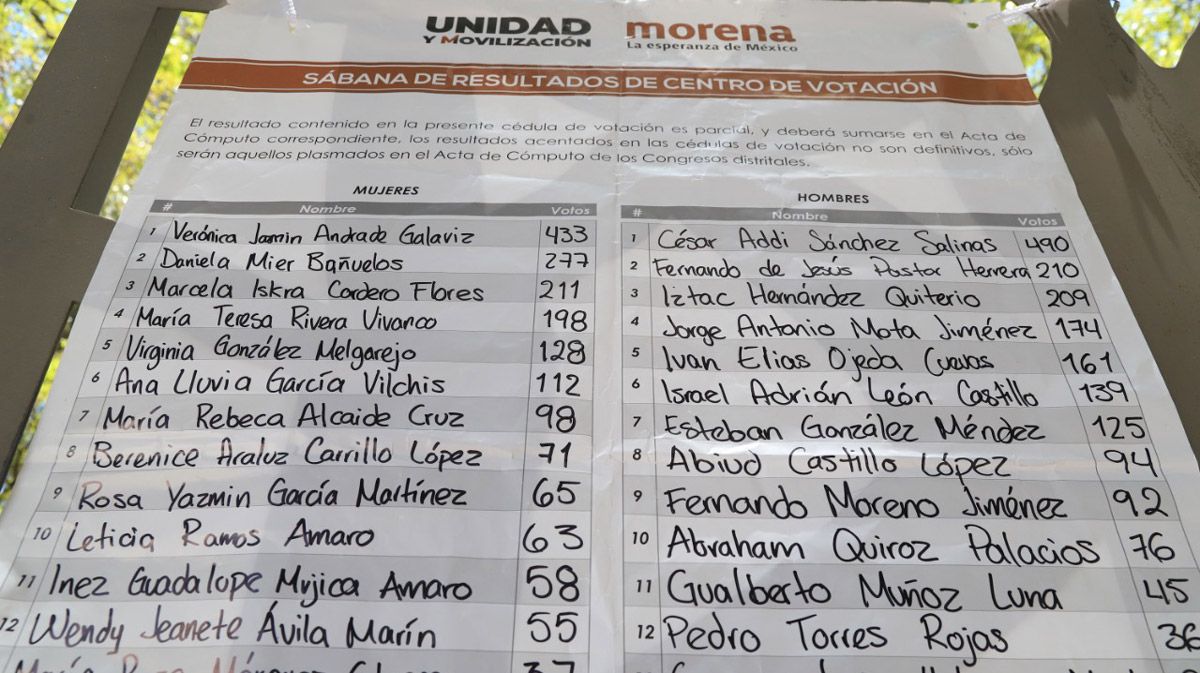 UNIDAD
Y MOVILIZACIÓN
morena
La esperanza de México
SÁBANA DE RESULTADOS DE CENTRO DE VOTACIÓN
El resultado contenido en la presente cédula de votación es parcial, y deberá sumarse en el Acta de
Cómputo correspondiente, los resultados acentados en las cédulas de votación no son definitivos, sólo
serán aquellos plasmados en el Acta de Cómputo de los Congresos distritales.
MUJERES
# Nombre Votos
1 Verónica Jamin Andrade Galaviz 433
2 Daniela Mier Bañuelos 277
3 Marcela Iskra Cordero Flores 211
4 María Teresa Rivera Vivanco 198
5 Virginia González Melgarejo 128
6 Ana Lluvia García Vilchis 112
7 María Rebeca Alcaide Cruz 98
8 Berenice Araluz Carrillo López 71
9 Rosa Yazmin García Martínez 65
10 Leticia Ramos Amaro 63
11 Inez Guadalupe Mujica Amaro 58
12 Wendy Jeanete Ávila Marín 55
37
HOMBRES
# Nombre Votos
1 César Addi Sánchez Salinas 490
2 Fernando de Jesús Pastor Herrera 210
3 Iztac Hernández Quiterio 209
4 Jorge Antonio Mota Jiménez 174
5 Ivan Elias Ojeda Cuevas 161
6 Israel Adrián León Castillo 139
7 Esteban González Méndez 125
8 Abiud Castillo López 94
9 Fernando Moreno Jiménez 92
10 Abraham Quiroz Palacios 76
11 Gualberto Muñoz Luna 45
12 Pedro Torres Rojas 36